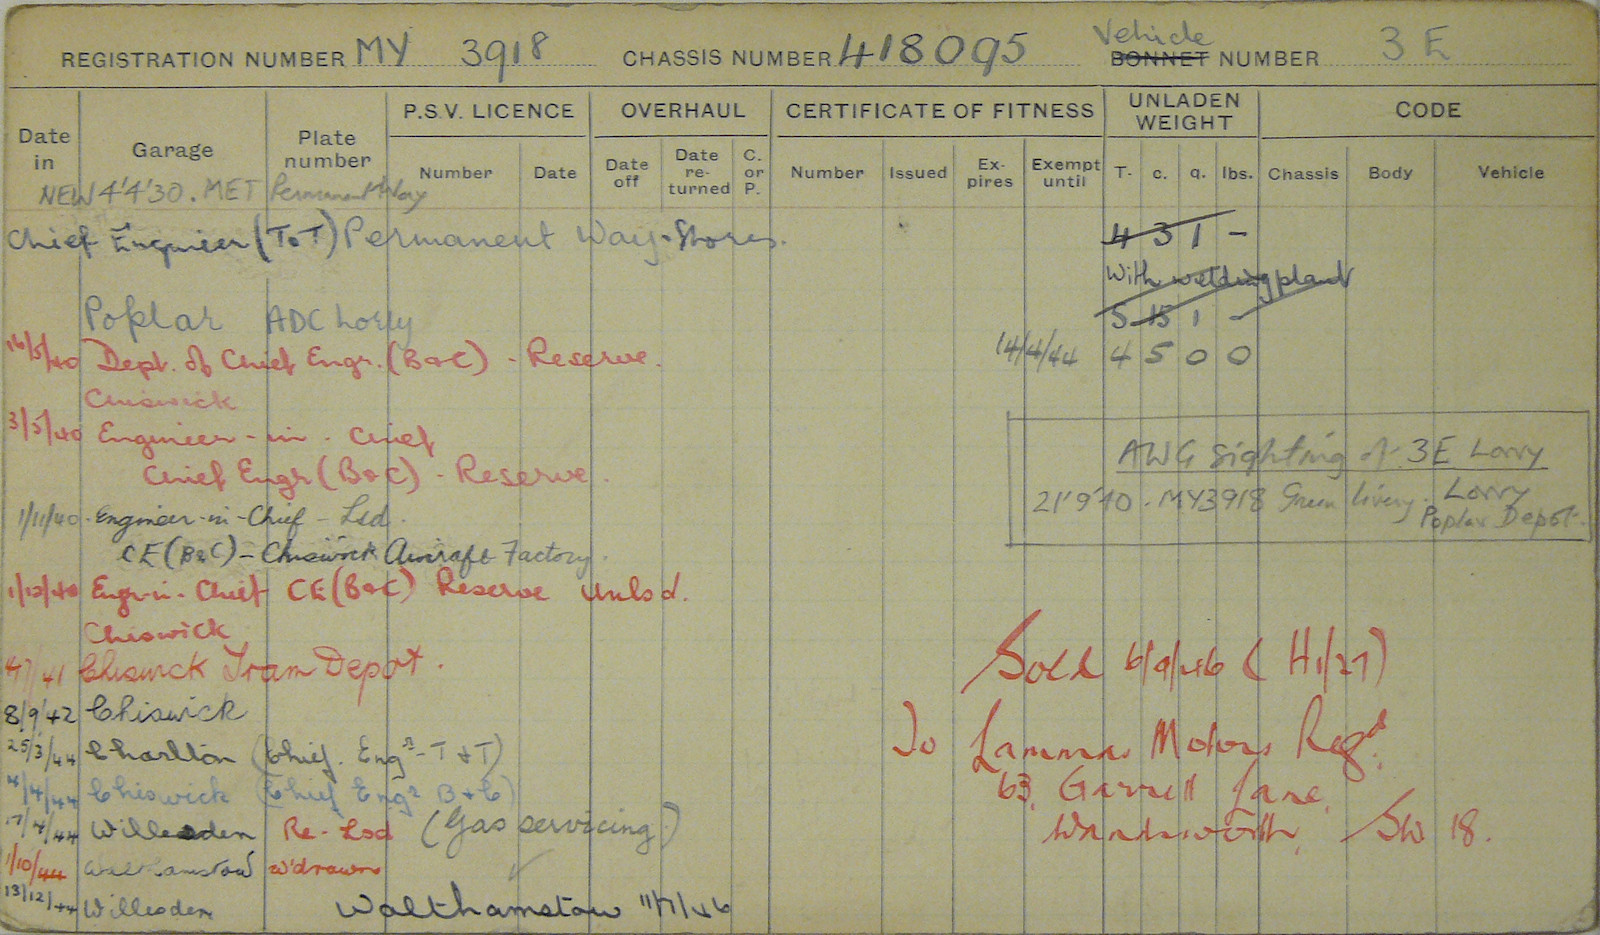 REGISTRATION NUMBER MY 3918 CHASSIS NUMBER 418095 Vehicle BONNET NUMBER 3 E
Date in Garage Plate number P.S.V. LICENCE OVERHAUL CERTIFICATE OF FITNESS UNLADEN WEIGHT CODE
Number Date Date off Date re-turned C. or P. Number Issued Ex-pires Exempt until T. c. q. lbs. Chassis Body Vehicle
NEW 4'4'30. MET Permanent Way
Chief Engineer (T&T) Permanent Way. Stores. 4 3 1 -
With welding plant
Poplar ADC Lorry 5 15 1 -
16/5/40 Dept. of Chief Engr. (B&C) - Reserve. 14/4/44 4 5 0 0
Chiswick
3/5/40 Engineer-in-Chief
Chief Engr (B&C) - Reserve.
AWG Sighting of 3E Lorry
21'9'40. MY3918 Green livery. Lorry
Poplar Depot.
1/11/40. Engineer-in-Chief - Lsd.
CE (B&C) - Chiswick Aircraft Factory.
1/12/40 Engr-in-Chief CE (B&C) Reserve Unlsd.
Chiswick
4/7/41 Chiswick Tram Depot.
Sold 6/9/46 (H1/27)
8/9/42 Chiswick
To Lammas Motors Regd.
25/3/44 Charlton (Chief. Engr - T & T)
4/4/44 Chiswick (Chief Engr B & C)
63, Garrett Lane,
17/4/44 Willesden Re-Lsd (Gas servicing)
Wandsworth, SW 18.
1/10/44 Walthamstow W'drawn
13/12/44 Willesden Walthamstow 11/7/46